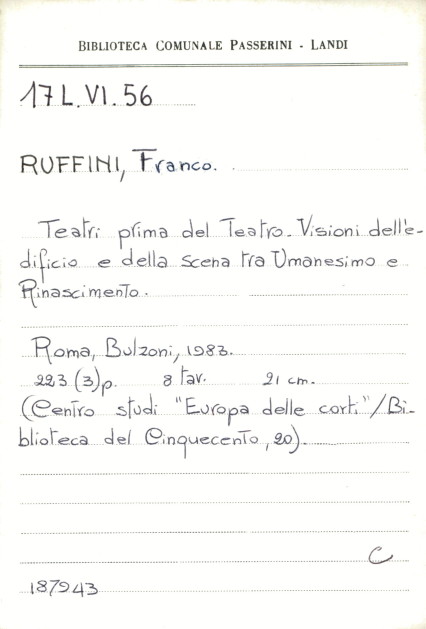 BIBLIOTECA COMUNALE PASSERINI - LANDI
17 L. VI. 56
RUFFINI, Franco.
Teatri prima del Teatro. Visioni dell'e-
dificio e della scena tra Umanesimo e
Rinascimento.
Roma, Bulzoni, 1983.
223 (3) p. 8 tav. 21 cm.
(Centro studi "Europa delle corti"/Bi-
blioteca del Cinquecento, 20).
C
187943